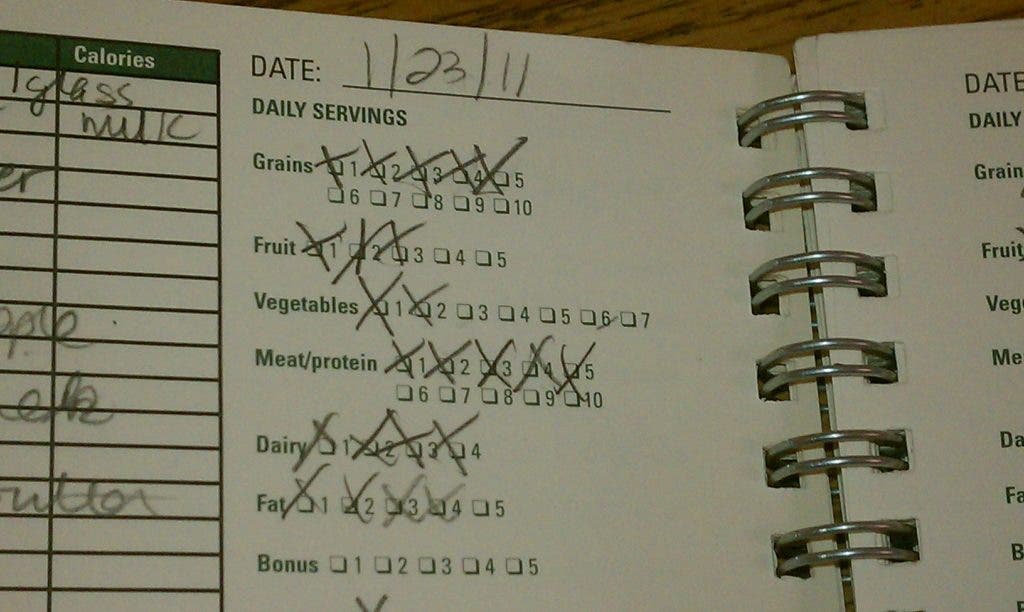 Calories
1glass
milk
DATE: 1/23/11
DAILY SERVINGS
Grains 1 2 3 4 5
6 7 8 9 10
Fruit 1 2 3 4 5
Vegetables 1 2 3 4 5 6 7
Meat/protein 1 2 3 4 5
6 7 8 9 10
Dairy 1 2 3 4
Fat 1 2 3 4 5
Bonus 1 2 3 4 5
DATE
DAILY
Grain
Fruit
Veg
Me
Da
Fa
B